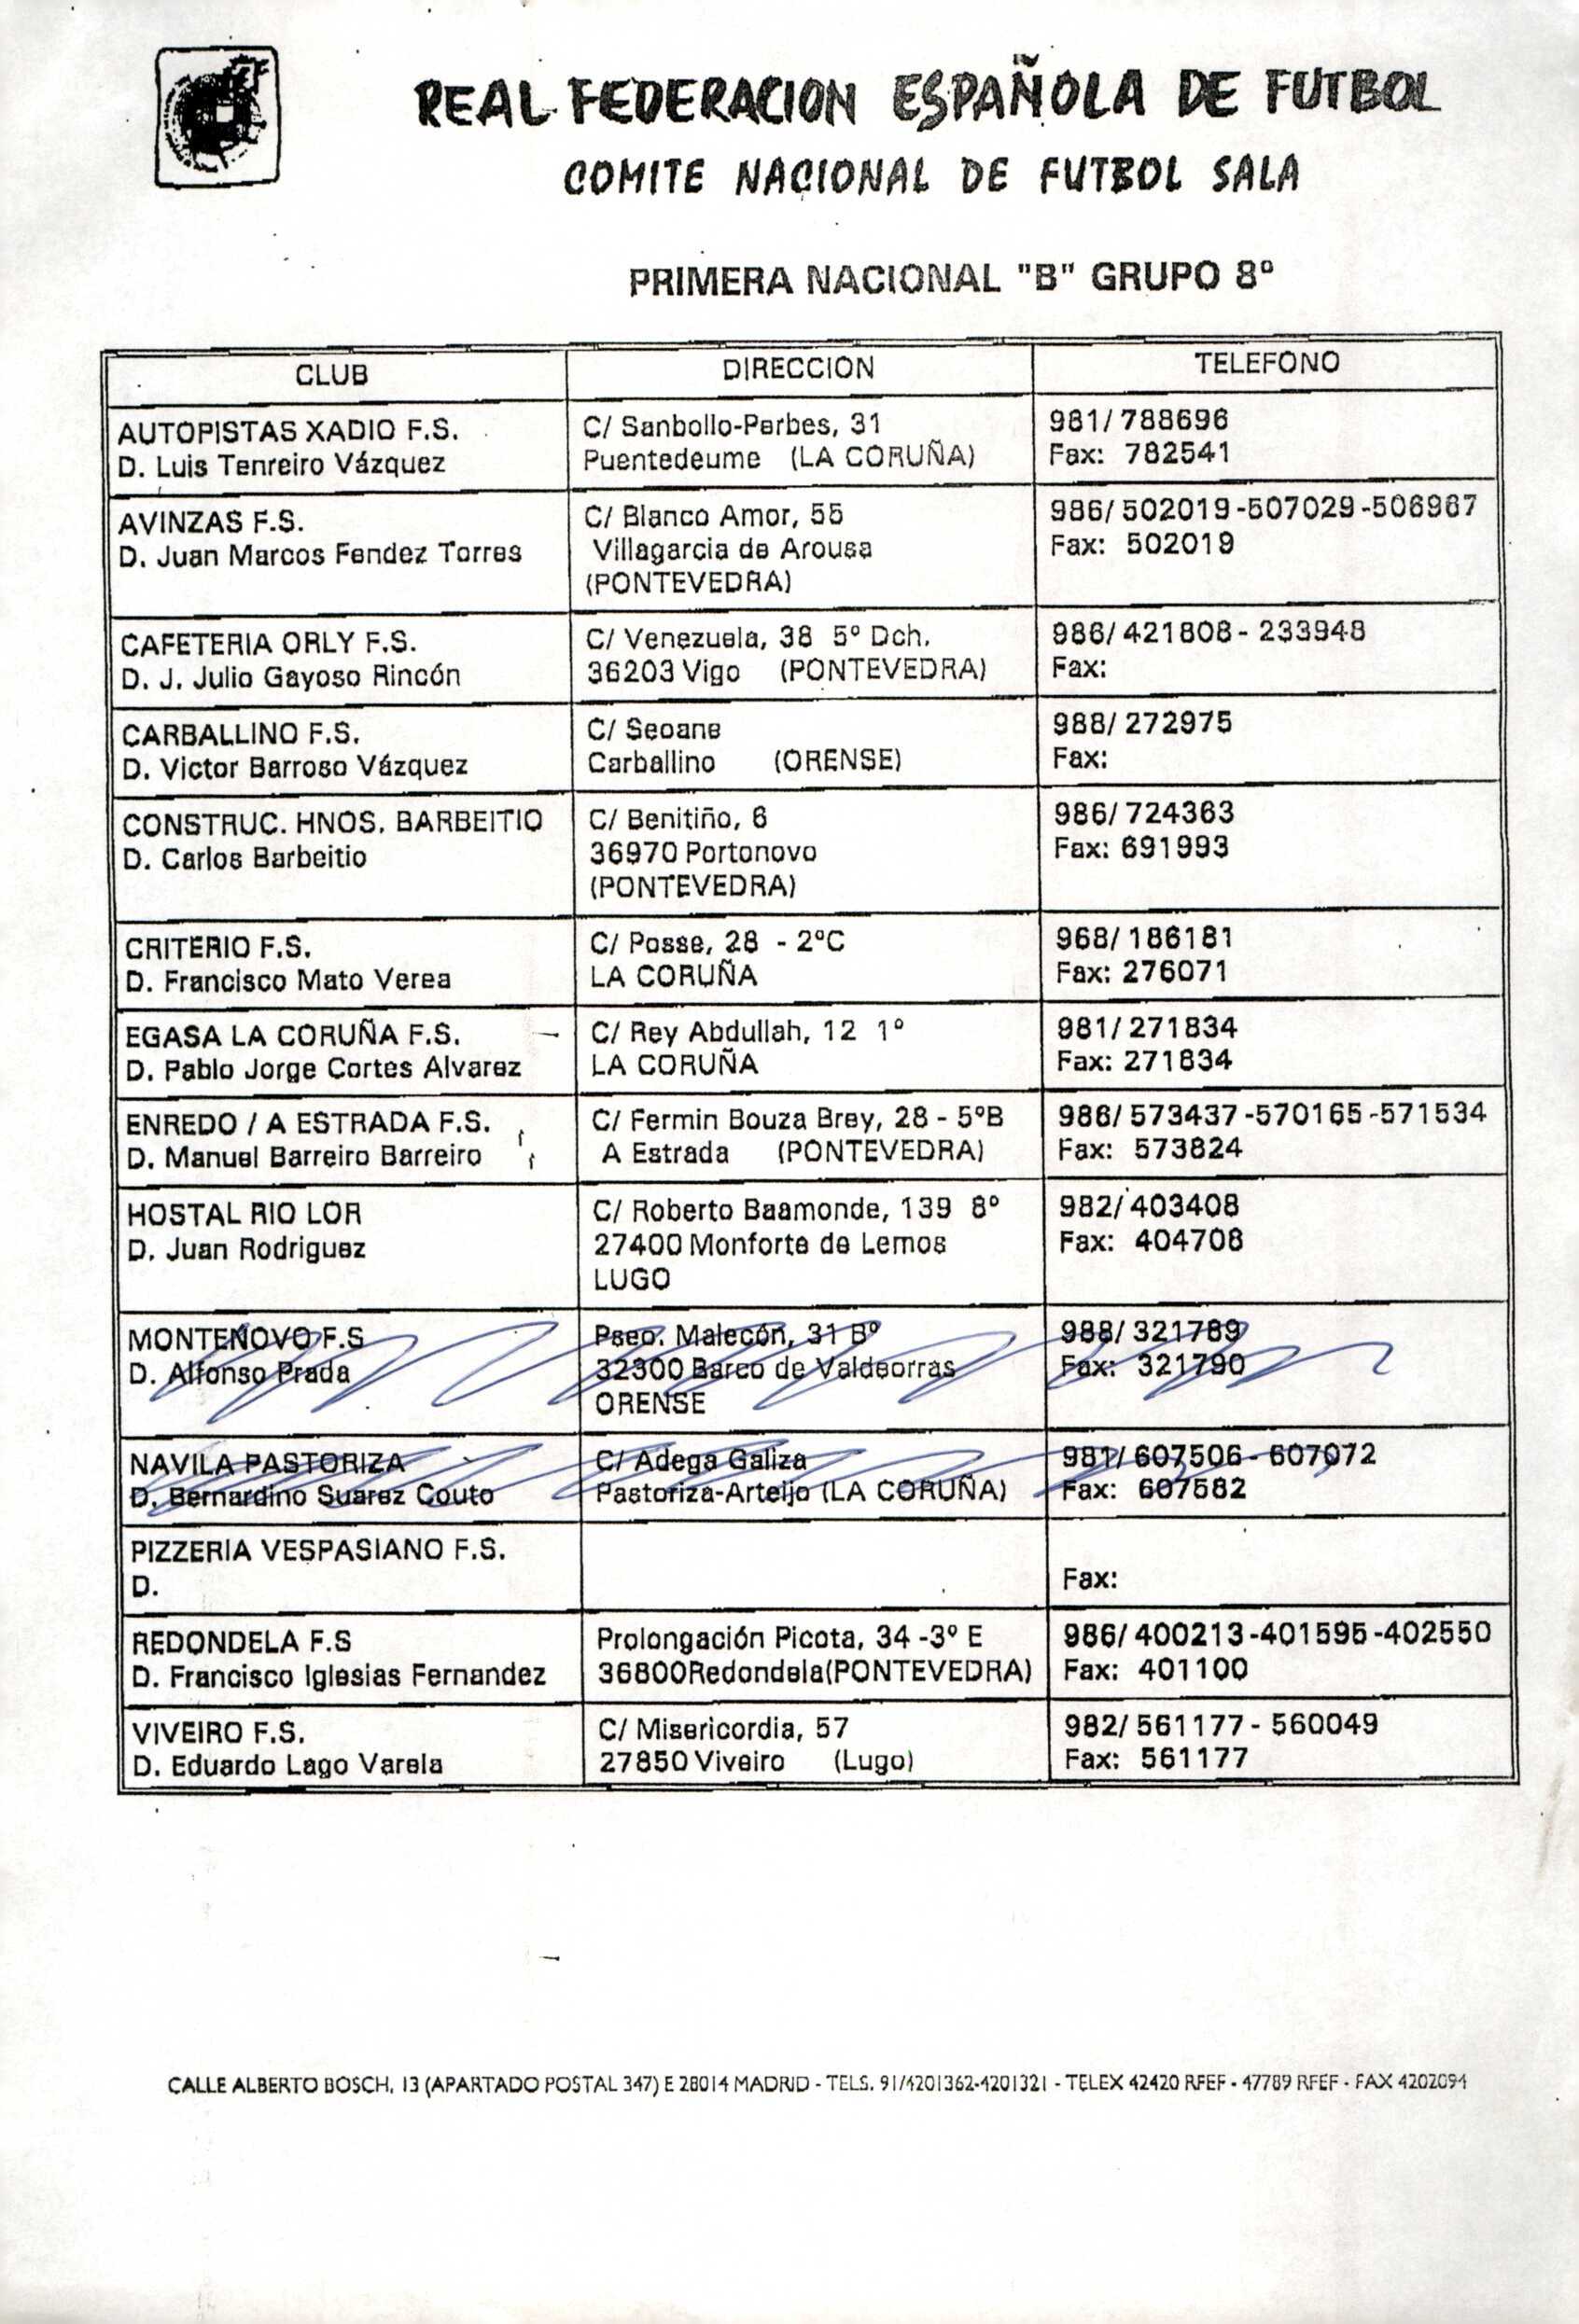 REAL FEDERACION ESPAÑOLA DE FUTBOL
COMITE NACIONAL DE FUTBOL SALA
PRIMERA NACIONAL "B" GRUPO 8º
CLUB DIRECCION TELEFONO
AUTOPISTAS XADIO F.S. C/ Sanbollo-Perbes, 31 981/788696
D. Luis Tenreiro Vázquez Puentedeume (LA CORUÑA) Fax: 782541
AVINZAS F.S. C/ Blanco Amor, 55 986/502019-507029-506967
D. Juan Marcos Fendez Torres Villagarcia de Arousa Fax: 502019
(PONTEVEDRA)
CAFETERIA ORLY F.S. C/ Venezuela, 38 5º Dch. 986/421808- 233948
D. J. Julio Gayoso Rincón 36203 Vigo (PONTEVEDRA) Fax:
CARBALLINO F.S. C/ Seoane 988/272975
D. Victor Barroso Vázquez Carballino (ORENSE) Fax:
CONSTRUC. HNOS. BARBEITIO C/ Benitiño, 6 986/724363
D. Carlos Barbeitio 36970 Portonovo Fax: 691993
(PONTEVEDRA)
CRITERIO F.S. C/ Posse, 28 - 2ºC 968/186181
D. Francisco Mato Verea LA CORUÑA Fax: 276071
EGASA LA CORUÑA F.S. C/ Rey Abdullah, 12 1º 981/271834
D. Pablo Jorge Cortes Alvarez LA CORUÑA Fax: 271834
ENREDO / A ESTRADA F.S. C/ Fermin Bouza Brey, 28 - 5ºB 986/573437-570165-571534
D. Manuel Barreiro Barreiro A Estrada (PONTEVEDRA) Fax: 573824
HOSTAL RIO LOR C/ Roberto Baamonde, 139 8º 982/403408
D. Juan Rodriguez 27400 Monforte de Lemos Fax: 404708
LUGO
MONTENOVO F.S Pseo. Malecón, 31 Bº 988/321789
D. Alfonso Prada 32300 Barco de Valdeorras Fax: 321790
ORENSE
NAVILA PASTORIZA C/ Adega Galiza 981/607506- 607072
D. Bernardino Suarez Couto Pastoriza-Arteijo (LA CORUÑA) Fax: 607582
PIZZERIA VESPASIANO F.S.
D. Fax:
REDONDELA F.S Prolongación Picota, 34 -3º E 986/400213-401595-402550
D. Francisco Iglesias Fernandez 36800Redondela(PONTEVEDRA) Fax: 401100
VIVEIRO F.S. C/ Misericordia, 57 982/561177- 560049
D. Eduardo Lago Varela 27850 Viveiro (Lugo) Fax: 561177
CALLE ALBERTO BOSCH, 13 (APARTADO POSTAL 347) E 28014 MADRID - TELS. 91/4201362-4201321 - TELEX 42420 RFEF - 47789 RFEF - FAX 4202094